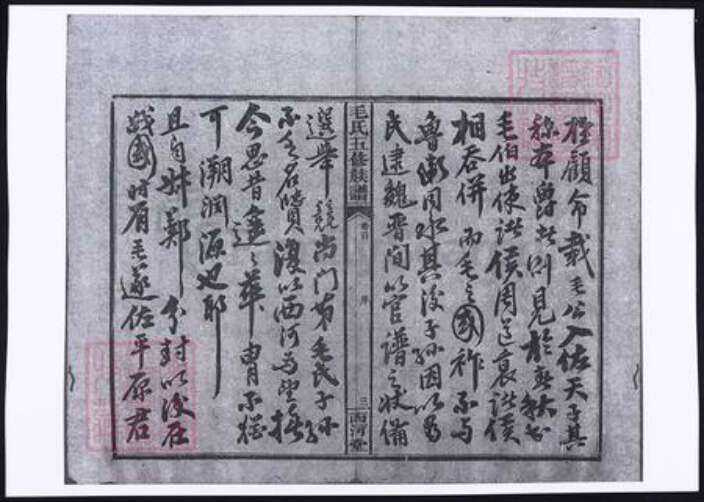 顧命載毛公入佐天子其
爵於則見於春秋書
毛伯出使諸侯周道衰諸侯
相吞併而毛之國祚不與
魯衛同以其後子孫因以為
氏逮魏晉間以官譜之狀備
毛氏五修族譜
卷首
序
三
西河堂
選舉競尚門第毛氏子孫
不乏名賢復以西河為望
今思昔遠之華胄不
可溯淵源也耶
且自鄭分封以後在
戰國時有毛遂佐平原君